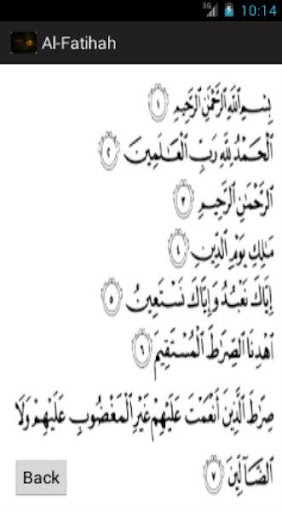 3G 10:14
Al-Fatihah
بِسْمِ ٱللَّهِ ٱلرَّحْمَٰنِ ٱلرَّحِيمِ ١
ٱلْحَمْدُ لِلَّهِ رَبِّ ٱلْعَٰلَمِينَ ٢
ٱلرَّحْمَٰنِ ٱلرَّحِيمِ ٣
مَٰلِكِ يَوْمِ ٱلدِّينِ ٤
إِيَّاكَ نَعْبُدُ وَإِيَّاكَ نَسْتَعِينُ ٥
ٱهْدِنَا ٱلصِّرَٰطَ ٱلْمُسْتَقِيمَ ٦
صِرَٰطَ ٱلَّذِينَ أَنْعَمْتَ عَلَيْهِمْ غَيْرِ ٱلْمَغْضُوبِ عَلَيْهِمْ وَلَا
ٱلضَّآلِّينَ ٧
Back